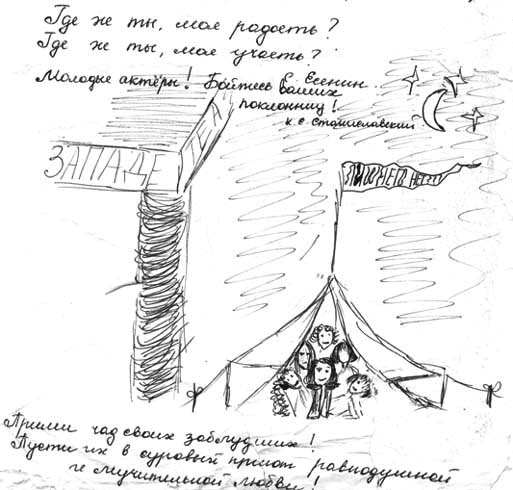 Где же ты, моя радость?
Где же ты, моя участь?
С. Есенин
Молодые актёры! Бойтесь ваших
поклонниц!
К. С. Станиславский
ЗАПАДЕ
ТЕА
Прими чад своих заблудших!
Пусти их в суровый приют равнодушной
мучительной любви!